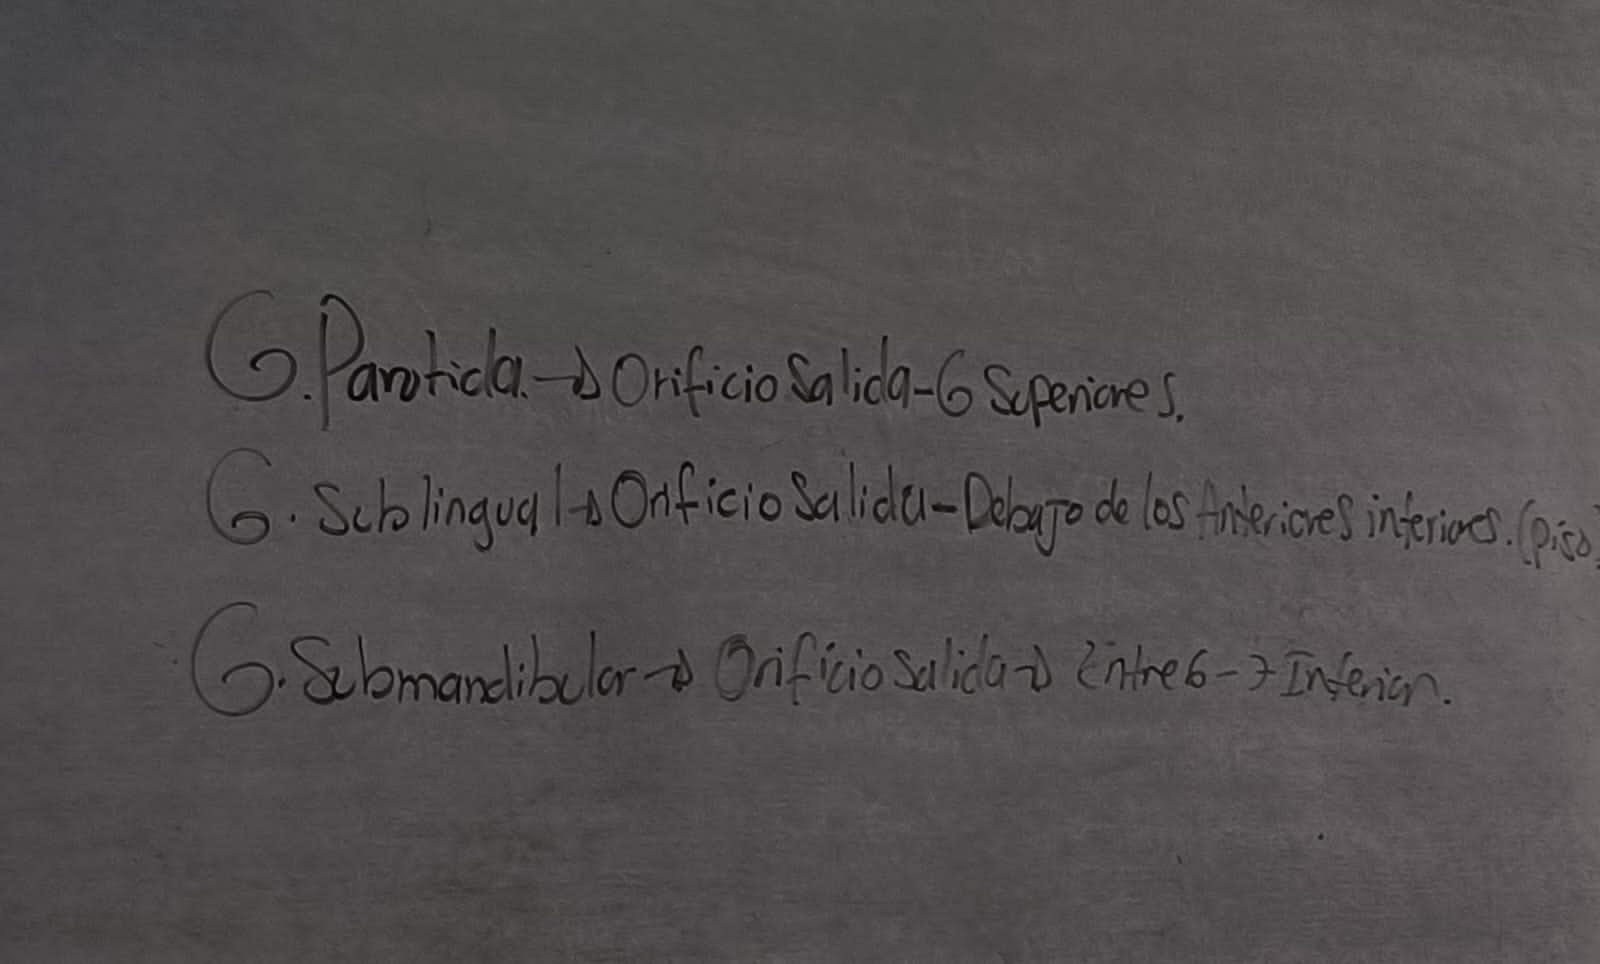 G. Parotida. → Orificio Salida - 6 Superiores.
G. Sublingual → Orificio Salida - Debajo de los Anteriores inferiores. (piso)
G. Submandibular → Orificio Salida → Entre 6 - 7 Inferior.